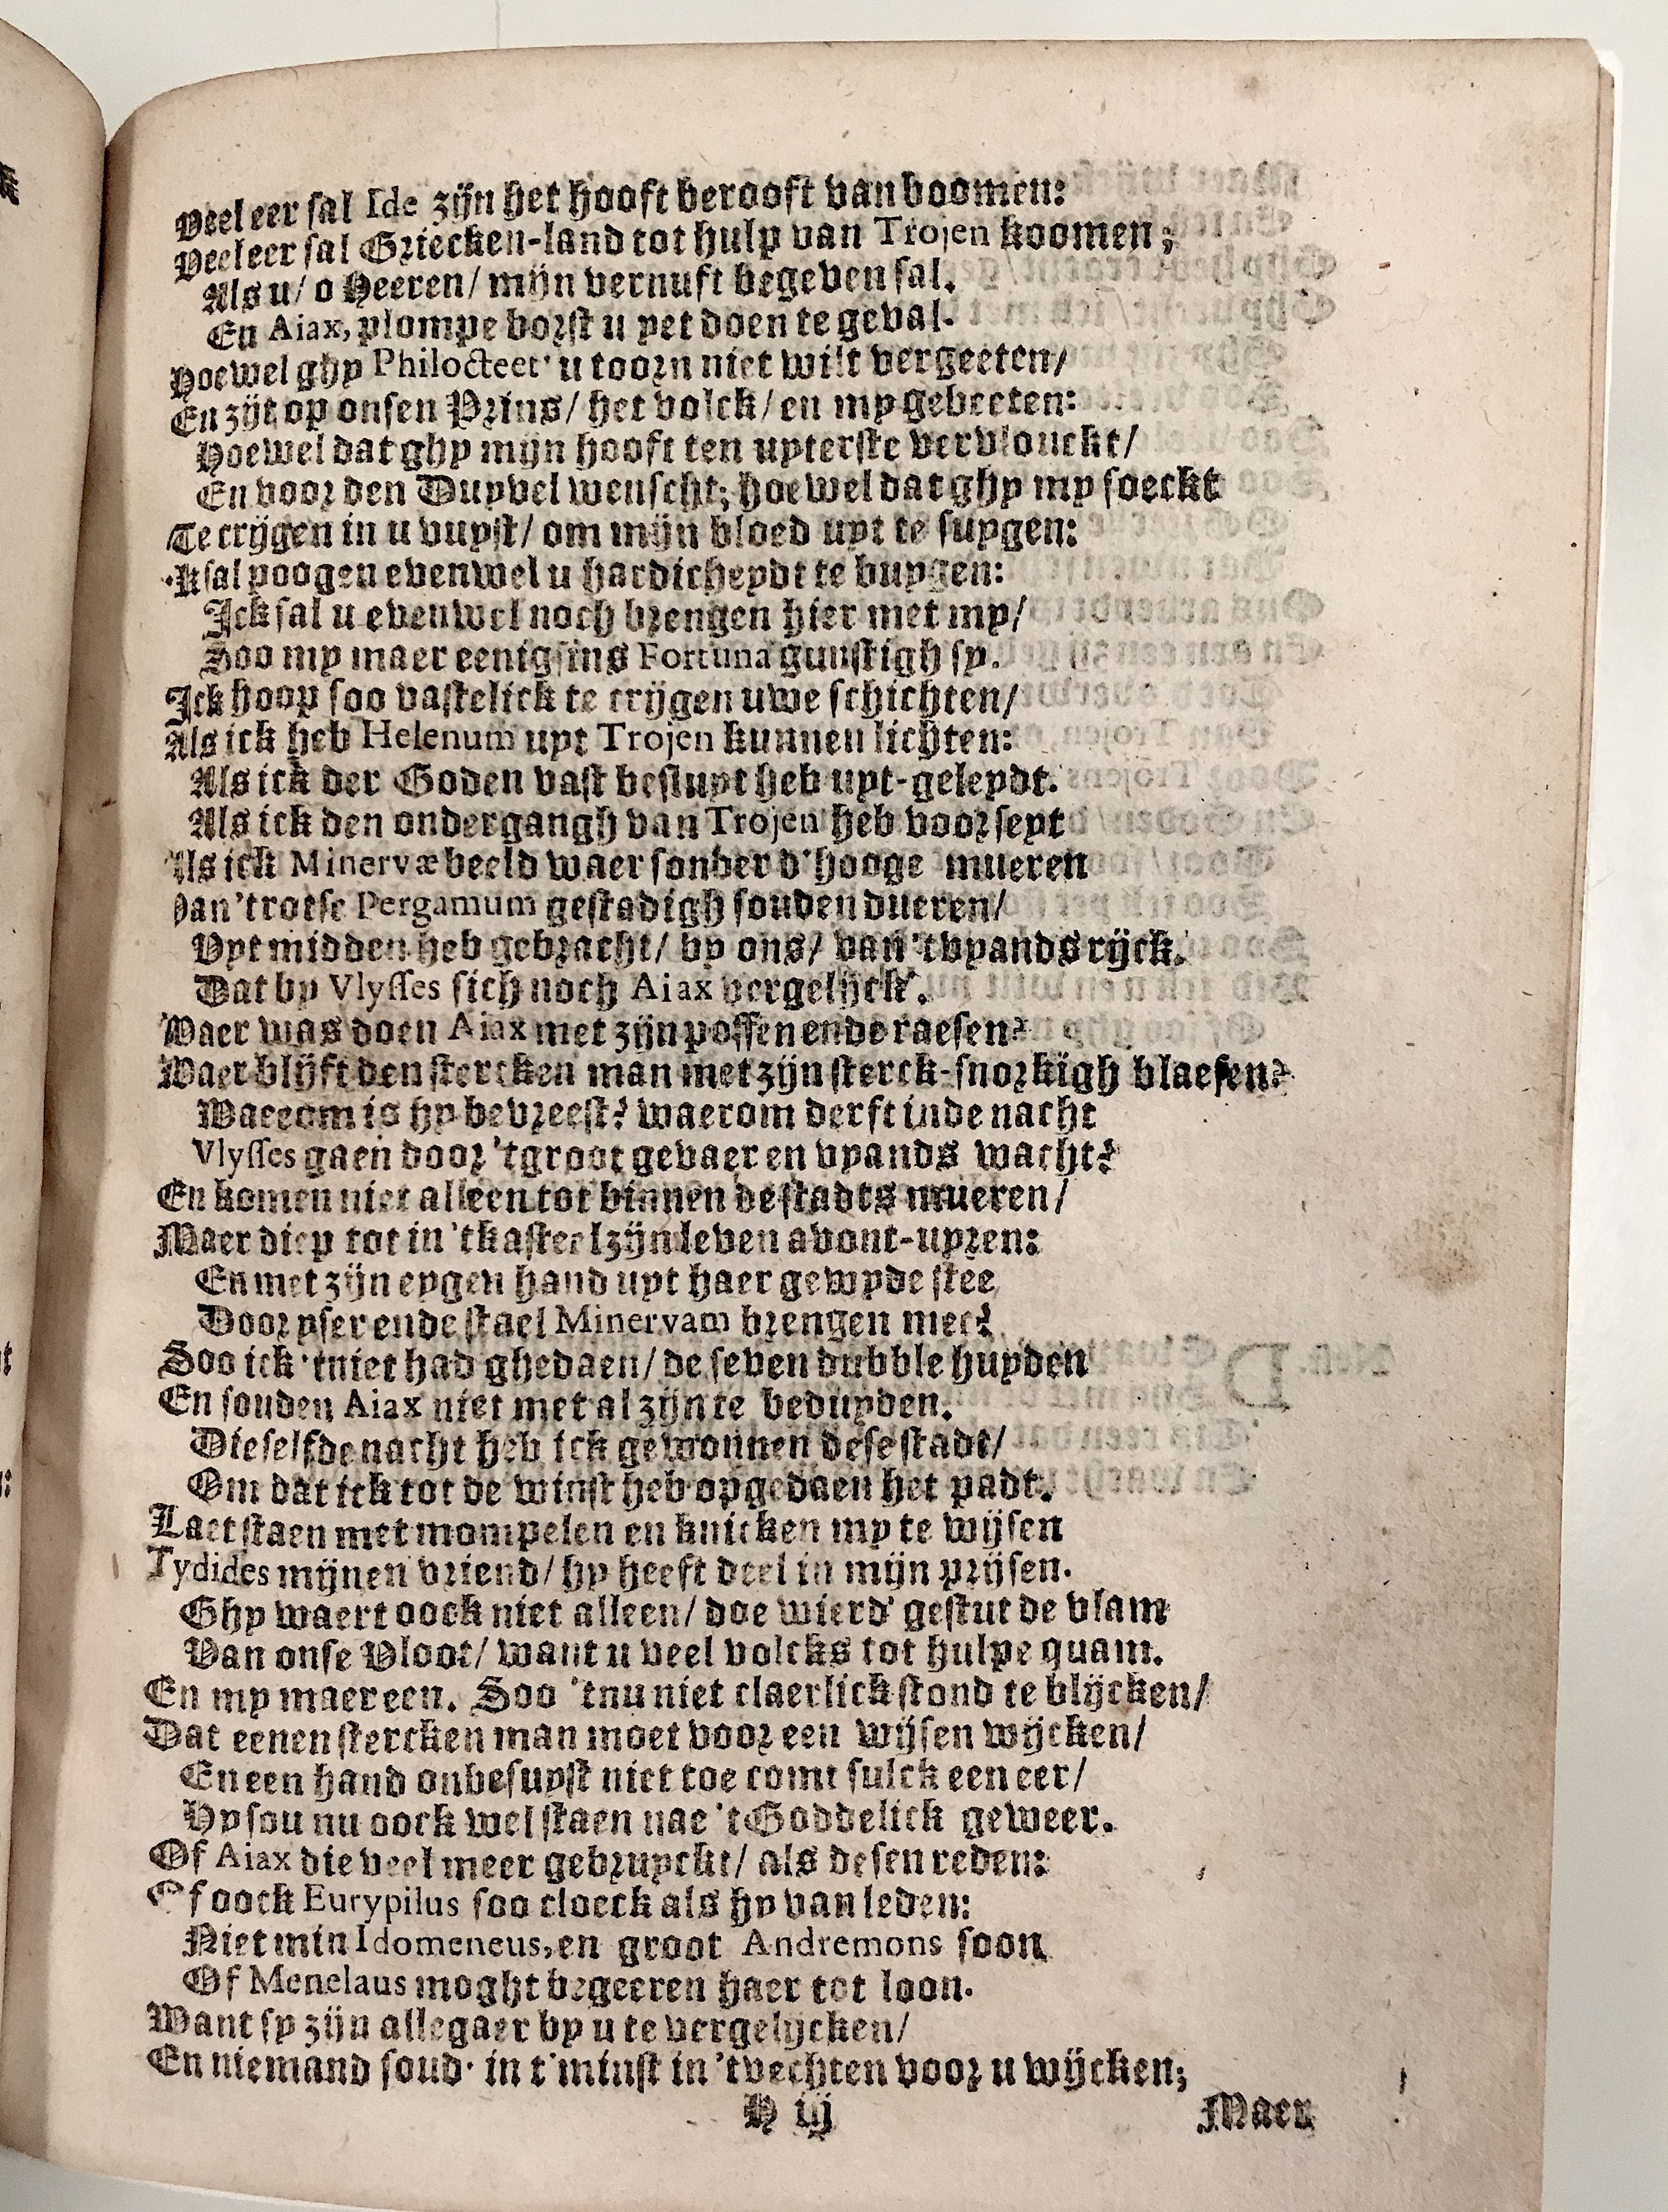 Veel eer sal Ide zijn het hooft berooft van boomen:
Veel eer sal Griecken-land tot hulp van Trojen koomen;
Als u/ o Heeren/ mijn vernuft begeven sal.
En Aiax, plompe borst u yet doen te geval.
Hoewel ghy Philocteet' u toorn niet wilt vergeeten/
En zijt op onsen Prins/ het volck/ en my gebeeten:
Hoewel dat ghy mijn hooft ten uyterste vervlouckt/
En voor den Duyvel wenscht; hoewel dat ghy my soeckt
Te crijgen in u vuyst/ om mijn bloed uyt te suygen:
'k sal poogen evenwel u hardicheydt te buygen:
Ick sal u evenwel noch brengen hier met my/
Soo my maer eenigsins Fortuna gunstigh sy.
Ick hoop soo vastelick te crijgen uwe schichten/
Als ick heb Helenum uyt Trojen kunnen lichten:
Als ick der Goden vast besluyt heb uyt-geleydt.
Als ick den ondergangh van Trojen heb voorseyt
Als ick Minervæ beeld waer sonder d'hooge mueren
Van 'trotse Pergamum gestadigh souden dueren/
Uyt midden heb gebracht/ by ons/ van 'tvyands rijck.
Dat by Vlysses sich noch Aiax vergelijck'.
Waer was doen Aiax met zijn poffen ende raesen?
Waer blijft den stercken man met zijn sterck-snorkigh blaesen?
Waerom is hy bevreest? waerom derft inde nacht
Vlysses gaen door 'tgroot gevaer en vyands wacht?
En komen niet alleen tot binnen de stadts mueren/
Maer diep tot in 'tkasteel zijn leven avont-uyren:
En met zijn eygen hand uyt haer gewyde stee
Door yser ende stael Minervam brengen mee?
Soo ick 'tniet had ghedaen/ de seven dubble huyden
En souden Aiax niet met al zijn te beduyden.
Die selfde nacht heb ick gewonnen dese stadt/
Om dat ick tot de winst heb opgedaen het padt.
Laet staen met mompelen en knicken my te wijsen
Tydides mijnen vriend/ hy heeft deel in mijn prijsen.
Ghy waert oock niet alleen/ doe wierd' gestut de vlam
Van onse Vloot/ want u veel volcks tot hulpe quam.
En my maer een. Soo 'tnu niet claerlick stond te blijcken/
Dat eenen stercken man moet voor een wijsen wijcken/
En een hand onbesuyst niet toe comt sulck een eer/
Hy sou nu oock wel staen nae 't Goddelick geweer.
Of Aiax die veel meer gebruyckt/ als desen reden:
Of oock Eurypilus soo cloeck als hy van leden:
Niet min Idomeneus, en groot Andremons soon
Of Menelaus moght begeeren haer tot loon.
Want sy zijn allegaer by u te vergelijcken/
En niemand soud' in t'minst in 'tvechten voor u wijcken;
H iij
Maer